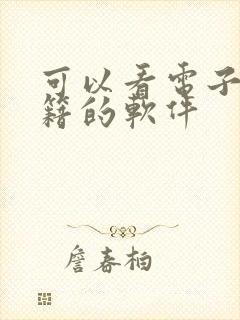 可以看电子
籍的軟件
詹春柏